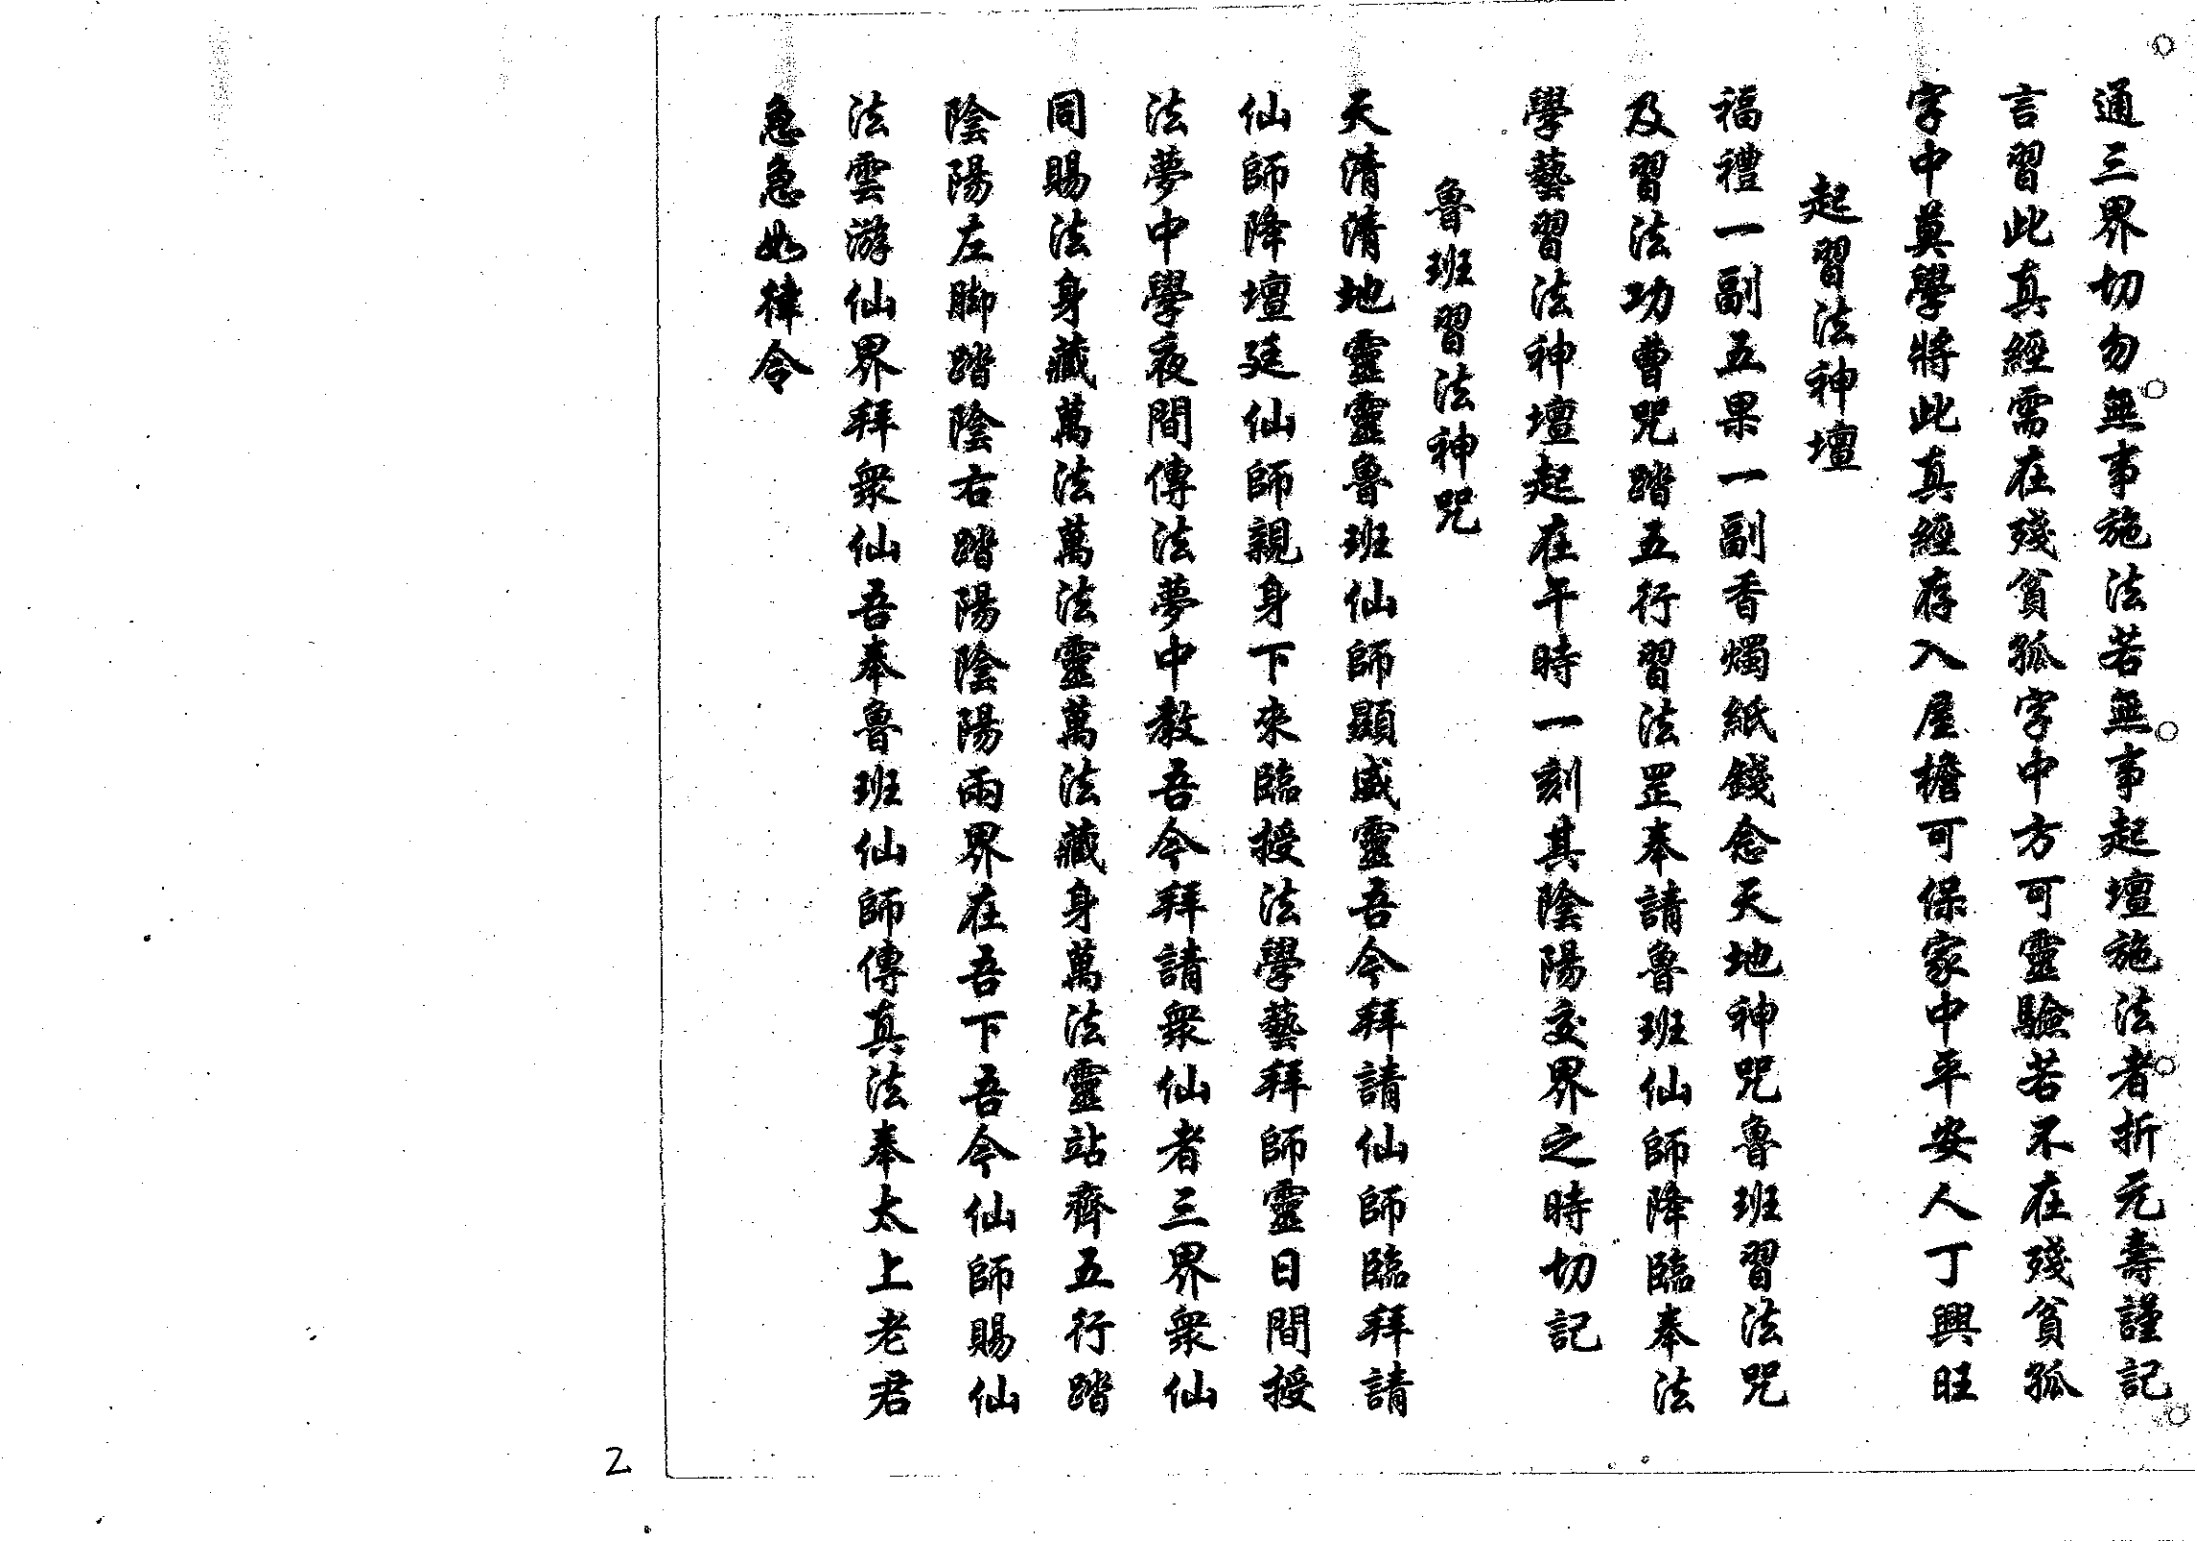 通三界切勿無事施法若無事起壇施法者折元壽謹記
言習此真經需在殘貧孤字中方可靈驗若不在殘貧孤
字中莫學將此真經存入屋檐可保家中平安人丁興旺
起習法神壇
福禮一副五果一副香燭紙錢念天地神咒魯班習法咒
及習法功曹咒踏五行習法罡奉請魯班仙師降臨奉法
學藝習法神壇起在午時一刻其陰陽交界之時切記
魯班習法神咒
天清清地靈靈魯班仙師顯威靈吾今拜請仙師臨拜請
仙師降壇廷仙師親身下來臨授法學藝拜師靈日間授
法夢中學夜間傳法夢中教吾今拜請眾仙者三界眾仙
同賜法身藏萬法萬法靈萬法藏身萬法靈站齊五行踏
陰陽左脚踏陰右踏陽陰陽兩界在吾下吾今仙師賜仙
法雲游仙界拜眾仙吾奉魯班仙師傳真法奉太上老君
急急如律令
2